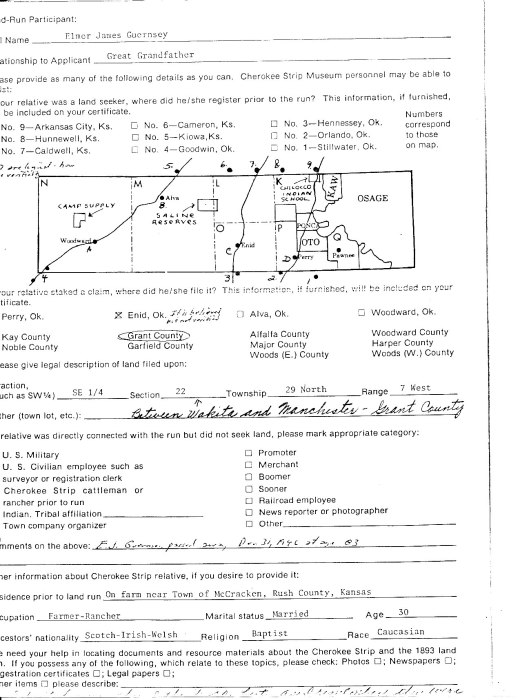 d-Run Participant:
Name Elmer James Guernsey
ationship to Applicant Great Grandfather
ase provide as many of the following details as you can. Cherokee Strip Museum personnel may be able to
ist:
our relative was a land seeker, where did he/she register prior to the run? This information, if furnished,
be included on your certificate.
Numbers correspond to those on map.
No. 9—Arkansas City, Ks. ☐ No. 6—Cameron, Ks. ☐ No. 3—Hennessey, Ok.
No. 8—Hunnewell, Ks. ☐ No. 5—Kiowa, Ks. ☐ No. 2—Orlando, Ok.
No. 7—Caldwell, Ks. ☐ No. 4—Goodwin, Ok. ☐ No. 1—Stillwater, Ok.
5. 6. 7. 8. 9.
N M L K CHILOCCO INDIAN SCHOOL KAW OSAGE
CAMP SUPPLY Alva B SALINE RESERVES
Woodward A O P PONCA OTO Q
C Enid D Perry Pawnee
4 3 2 1
our relative staked a claim, where did he/she file it? This information, if furnished, will be included on your
tificate.
Perry, Ok. X Enid, Ok. ☐ Alva, Ok. ☐ Woodward, Ok.
Kay County Grant County Alfalfa County Woodward County
Noble County Garfield County Major County Harper County
Woods (E.) County Woods (W.) County
ease give legal description of land filed upon:
action,
uch as SW¼) SE 1/4 Section 22 Township 29 North Range 7 West
ther (town lot, etc.): Between Wakita and Manchester - Grant County
relative was directly connected with the run but did not seek land, please mark appropriate category:
U. S. Military ☐ Promoter
U. S. Civilian employee such as ☐ Merchant
surveyor or registration clerk ☐ Boomer
Cherokee Strip cattleman or ☐ Sooner
rancher prior to run ☐ Railroad employee
Indian. Tribal affiliation ☐ News reporter or photographer
Town company organizer ☐ Other
mments on the above: E.J. Guernsey passed away Dec. 31, 1946 at age 83
her information about Cherokee Strip relative, if you desire to provide it:
sidence prior to land run On farm near Town of McCracken, Rush County, Kansas
cupation Farmer-Rancher Marital status Married Age 30
cestors' nationality Scotch-Irish-Welsh Religion Baptist Race Caucasian
e need your help in locating documents and resource materials about the Cherokee Strip and the 1893 land
n. If you possess any of the following, which relate to these topics, please check: Photos ☐; Newspapers ☐;
gestration certificates ☐; Legal papers ☐;
her items ☐ please describe: